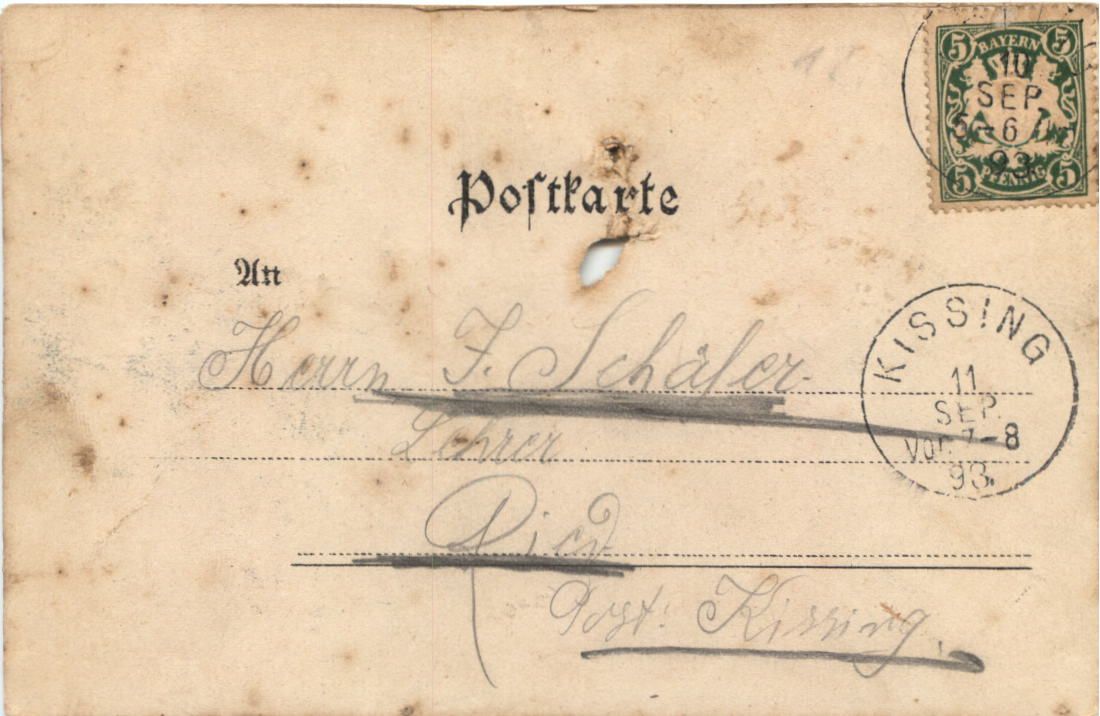 5 BAYERN 5
10
SEP
5-6
93
5 PFENNIG 5
Postkarte
An
KISSING
11
SEP.
Vor. 7-8
93.
Herrn J. Schäfer
Lehrer
Ried
Post: Kissing.